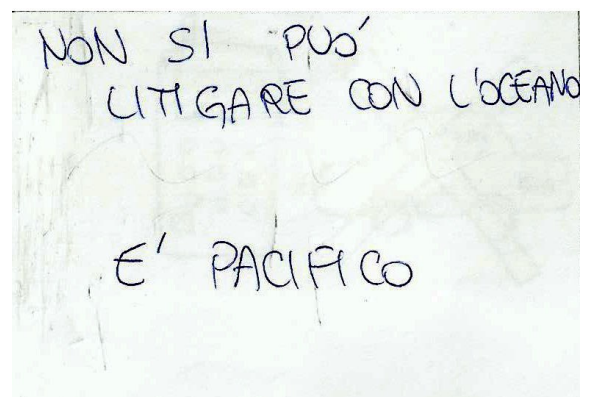 NON SI PUO'
LITIGARE CON L'OCEANO
E' PACIFICO